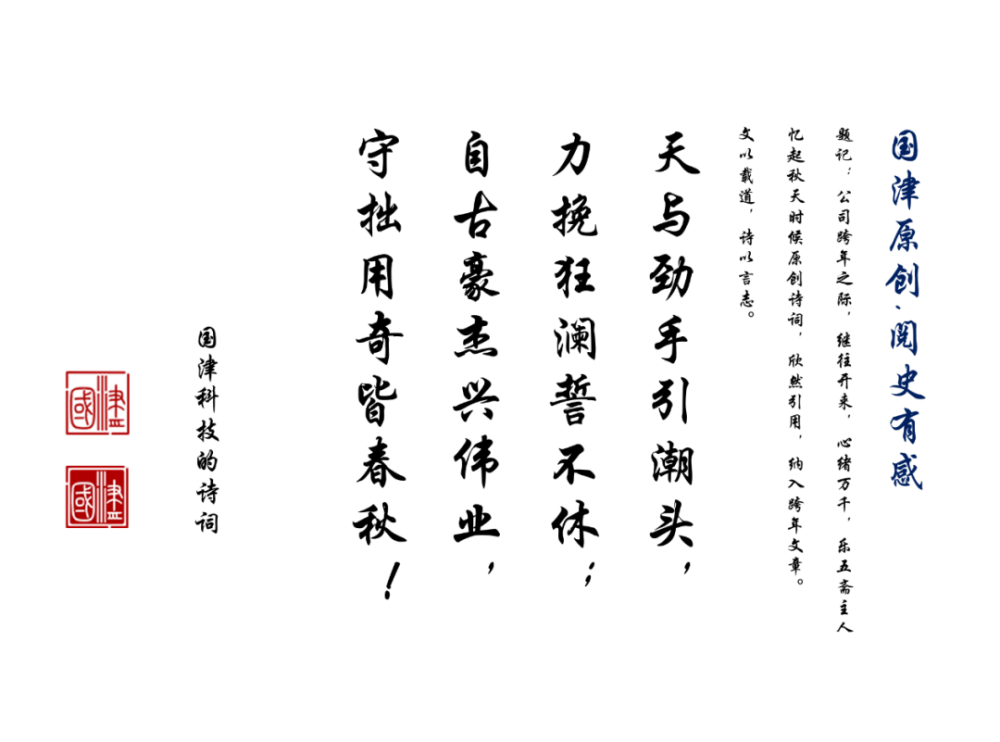 国津原创·阅史有感
题记：公司跨年之际，继往开来，心绪万千，乐五斋主人
忆起秋天时候原创诗词，欣然引用，纳入跨年文章。
文以载道，诗以言志。
天与劲手引潮头，
力挽狂澜誓不休；
自古豪杰兴伟业，
守拙用奇皆春秋！
国津科技的诗词
國津
國津